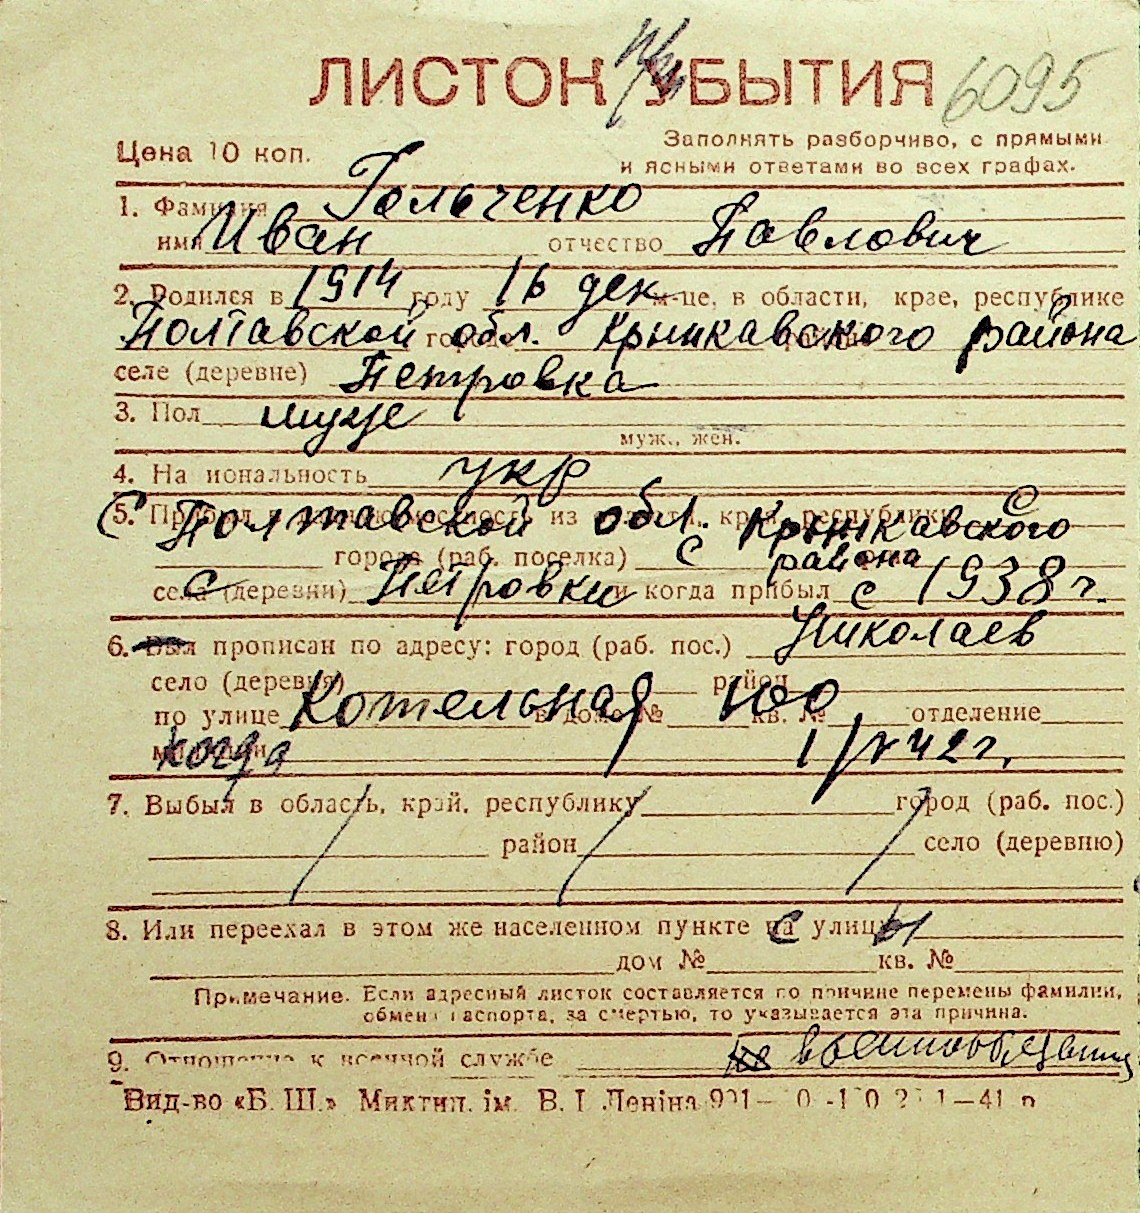 ЛИСТОК УБЫТИЯ 6095
Цена 10 коп.
Заполнять разборчиво, с прямыми
и ясными ответами во всех графах.
1. Фамилия Гольченко
имя Иван отчество Павлович
2. Родился в 1914 году 16 дек м-це, в области, крае, республике
Полтавской обл. Крюкавского района
селе (деревне) Петровка
3. Пол муж
муж., жен.
4. Национальность укр
5. Прибыл в данную местность из области, края, республики
С Полтавской обл. Крюкавского
города (раб. поселка) с района
села (деревни) Петровки и когда прибыл с 1938 г.
6. Был прописан по адресу: город (раб. пос.) Николаев
село (деревня) район
по улице Котельная в доме № 100 кв. № отделение
милиции когда 1/IV 42 г.
7. Выбыл в область, край, республику город (раб. пос.)
район село (деревню)
8. Или переехал в этом же населенном пункте на с улицы
дом № кв. №
Примечание. Если адресный листок составляется по причине перемены фамилии,
обмена паспорта, за смертью, то указывается эта причина.
9. Отношение к военной службе военнообязанный
Вид-во «Б. Ш.» Миктип. ім. В. І. Леніна